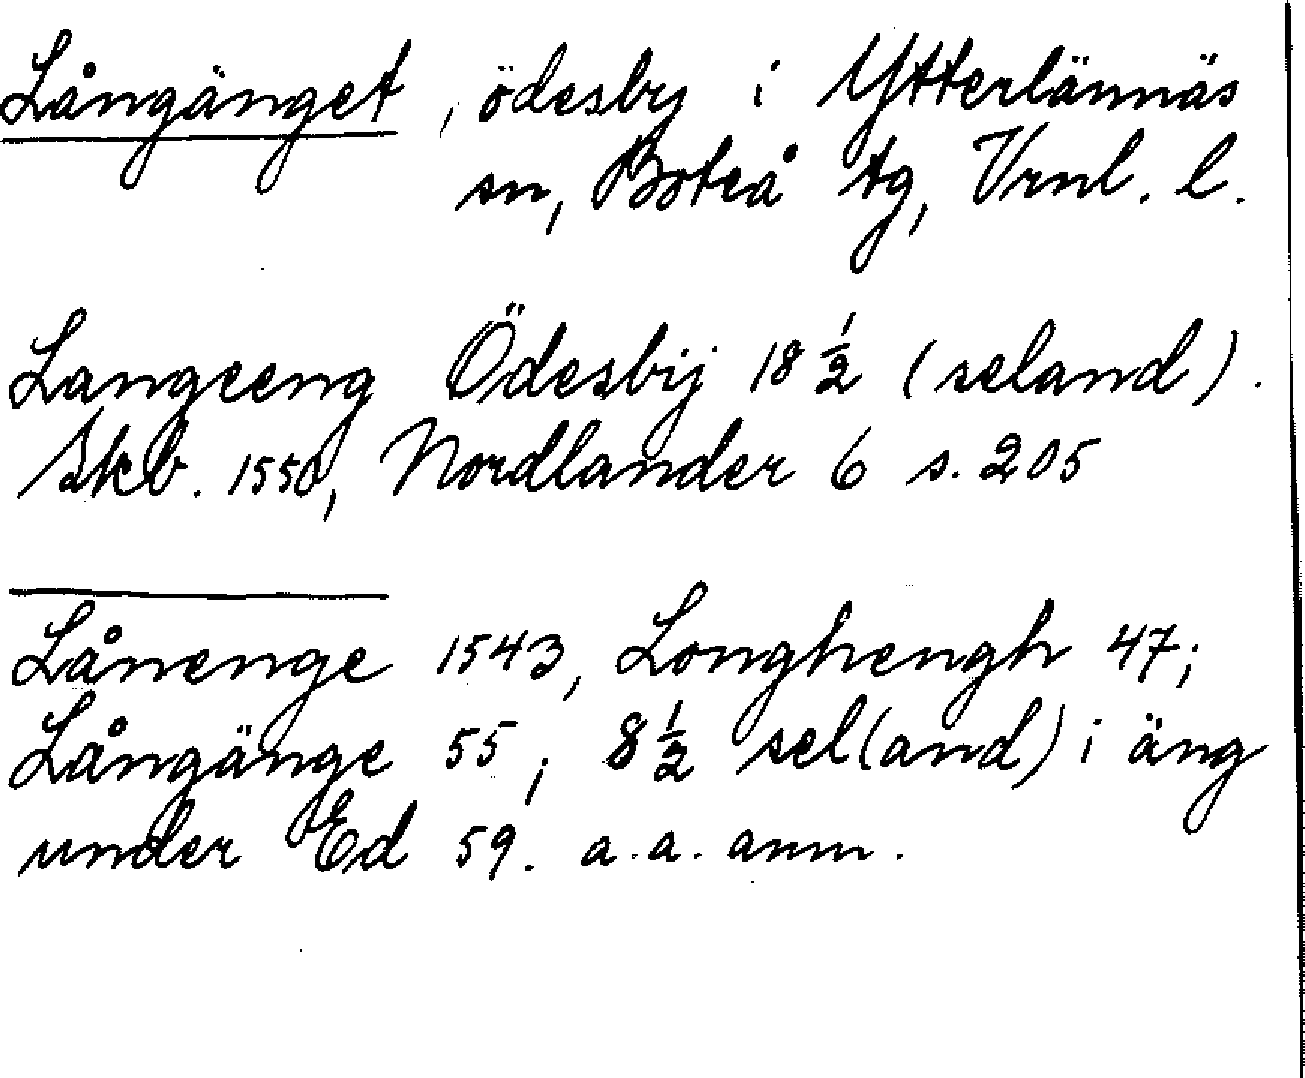 Långänget, ödesby i Ytterlännäs
sn, Boteå tg, Vrnl. l.
Langeeng Ödesbij 18 ½ (seland).
Skb. 1550, Nordlander 6 s. 205
Lånenge 1543, Longhengh 47;
Långänge 55; 8 ½ sel(and) i äng
under Ed 59. a.a. anm.